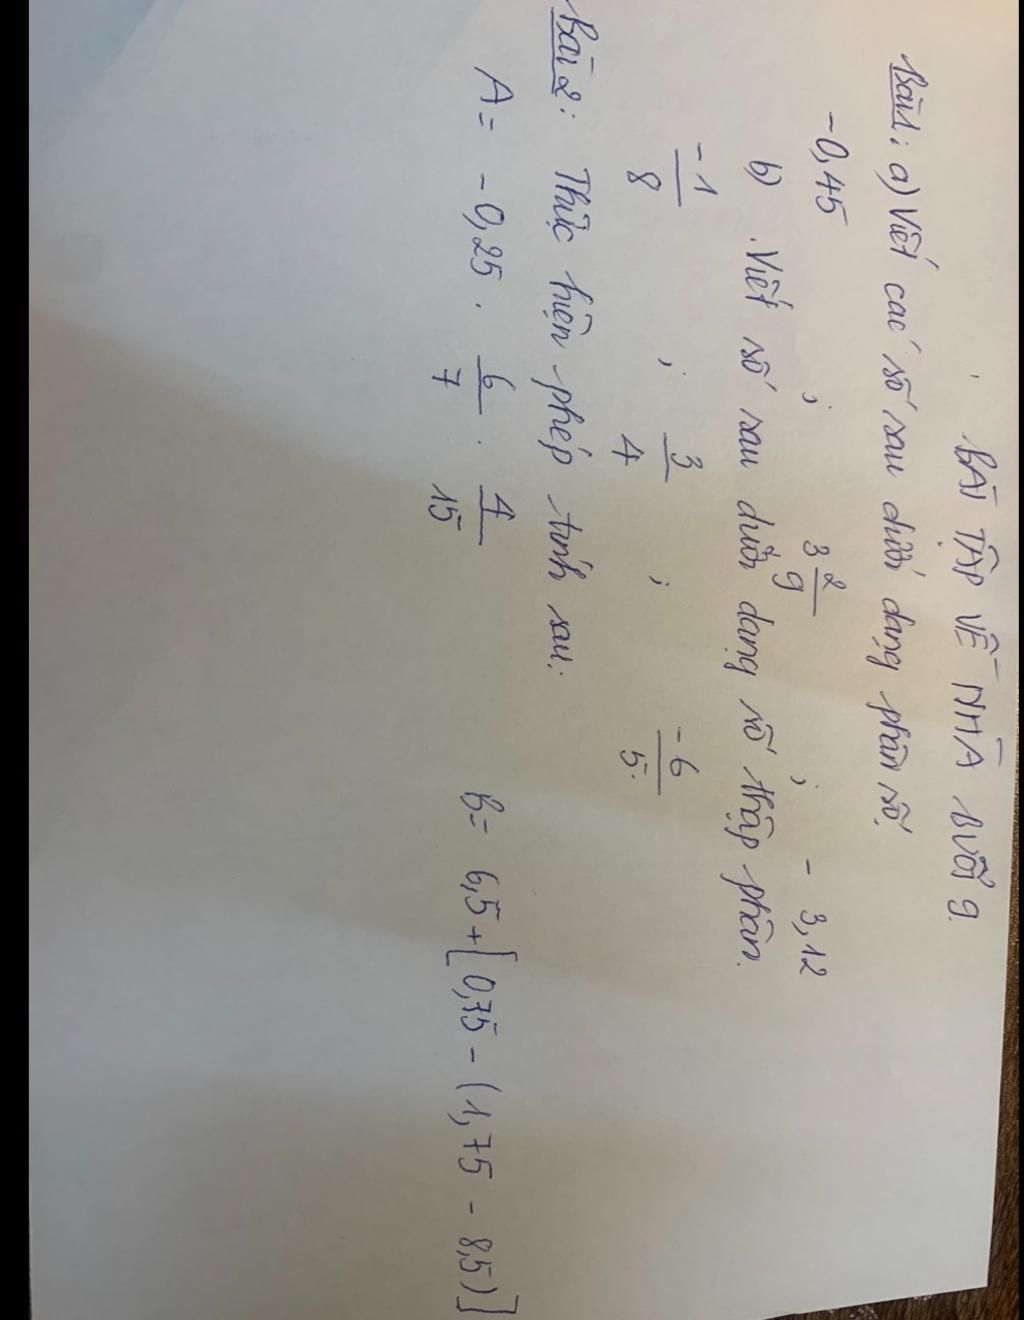 BÀI TẬP VỀ NHÀ BUỔI 9.
Bài 1: a) Viết các số sau dưới dạng phân số.
-0,45 ; 3 2/9 ; - 3,12
b) Viết số sau dưới dạng số thập phân.
-1/8 ; 3/4 ; -6/5.
Bài 2: Thực hiện phép tính sau:
A= -0,25 . 6/7 . 4/15 B= 6,5 + [0,75 - (1,75 - 8,5)]